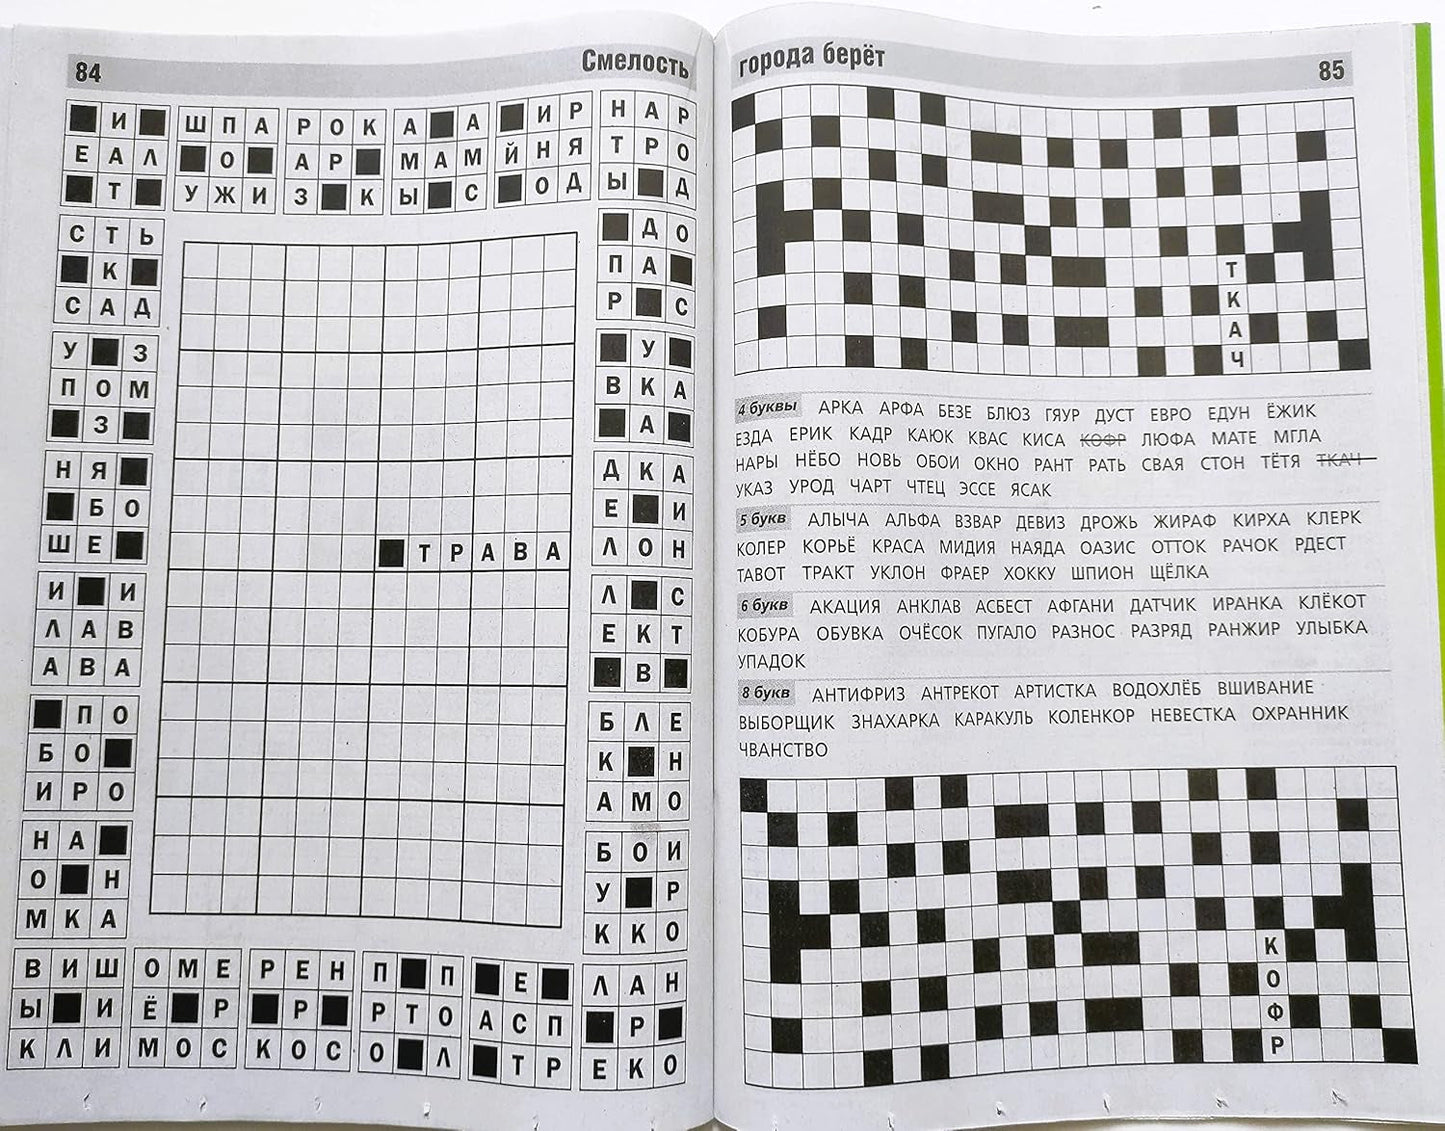 84
Смелость
■ И ■
Е А Л
■ Т ■
Ш П А
■ О ■
У Ж И
Р О К
А Р ■
З ■ К
А ■ А
М А М
Ы ■ С
■ И Р
Й Н Я
■ О Д
Н А Р
Т Р О
Ы ■ Д
С Т Ь
■ К ■
С А Д
■ Д О
П А ■
Р ■ С
У ■ З
П О М
■ З ■
■ У ■
В К А
■ А ■
Н Я ■
■ Б О
Ш Е ■
Д К А
Е ■ И
Л О Н
■ Т Р А В А
И ■ И
Л А В
А В А
Л ■ С
Е К Т
■ В ■
■ П О
Б О ■
И Р О
Б Л Е
К ■ Н
А М О
Н А ■
О ■ Н
М К А
Б О И
У ■ Р
К К О
В И Ш
Ы ■ И
К Л И
О М Е
Ё ■ Р
М О С
Р Е Н
■ Р ■
К О С
П ■ П
Р Т О
О ■ Л
■ Е ■
А С П
■ Т Р
Л А Н
■ Р ■
Е К О
города берёт
85
Т
К
А
Ч
4 буквы АРКА АРФА БЕЗЕ БЛЮЗ ГЯУР ДУСТ ЕВРО ЕДУН ЁЖИК
ЕЗДА ЕРИК КАДР КАЮК КВАС КИСА КОФР ЛЮФА МАТЕ МГЛА
НАРЫ НЁБО НОВЬ ОБОИ ОКНО РАНТ РАТЬ СВАЯ СТОН ТЁТЯ ТКАЧ
УКАЗ УРОД ЧАРТ ЧТЕЦ ЭССЕ ЯСАК
5 букв АЛЫЧА АЛЬФА ВЗВАР ДЕВИЗ ДРОЖЬ ЖИРАФ КИРХА КЛЕРК
КОЛЕР КОРЬЁ КРАСА МИДИЯ НАЯДА ОАЗИС ОТТОК РАЧОК РДЕСТ
ТАВОТ ТРАКТ УКЛОН ФРАЕР ХОККУ ШПИОН ЩЁЛКА
6 букв АКАЦИЯ АНКЛАВ АСБЕСТ АФГАНИ ДАТЧИК ИРАНКА КЛЁКОТ
КОБУРА ОБУВКА ОЧЁСОК ПУГАЛО РАЗНОС РАЗРЯД РАНЖИР УЛЫБКА
УПАДОК
8 букв АНТИФРИЗ АНТРЕКОТ АРТИСТКА ВОДОХЛЁБ ВШИВАНИЕ
ВЫБОРЩИК ЗНАХАРКА КАРАКУЛЬ КОЛЕНКОР НЕВЕСТКА ОХРАННИК
ЧВАНСТВО
К
О
Ф
Р